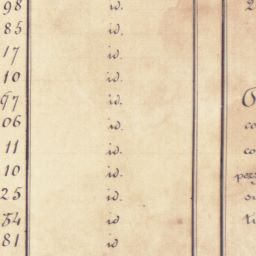 98 id.
85 id.
17 id.
10 id.
67 id.
06 id.
11 id.
10 id.
25 id.
54 id
81 id